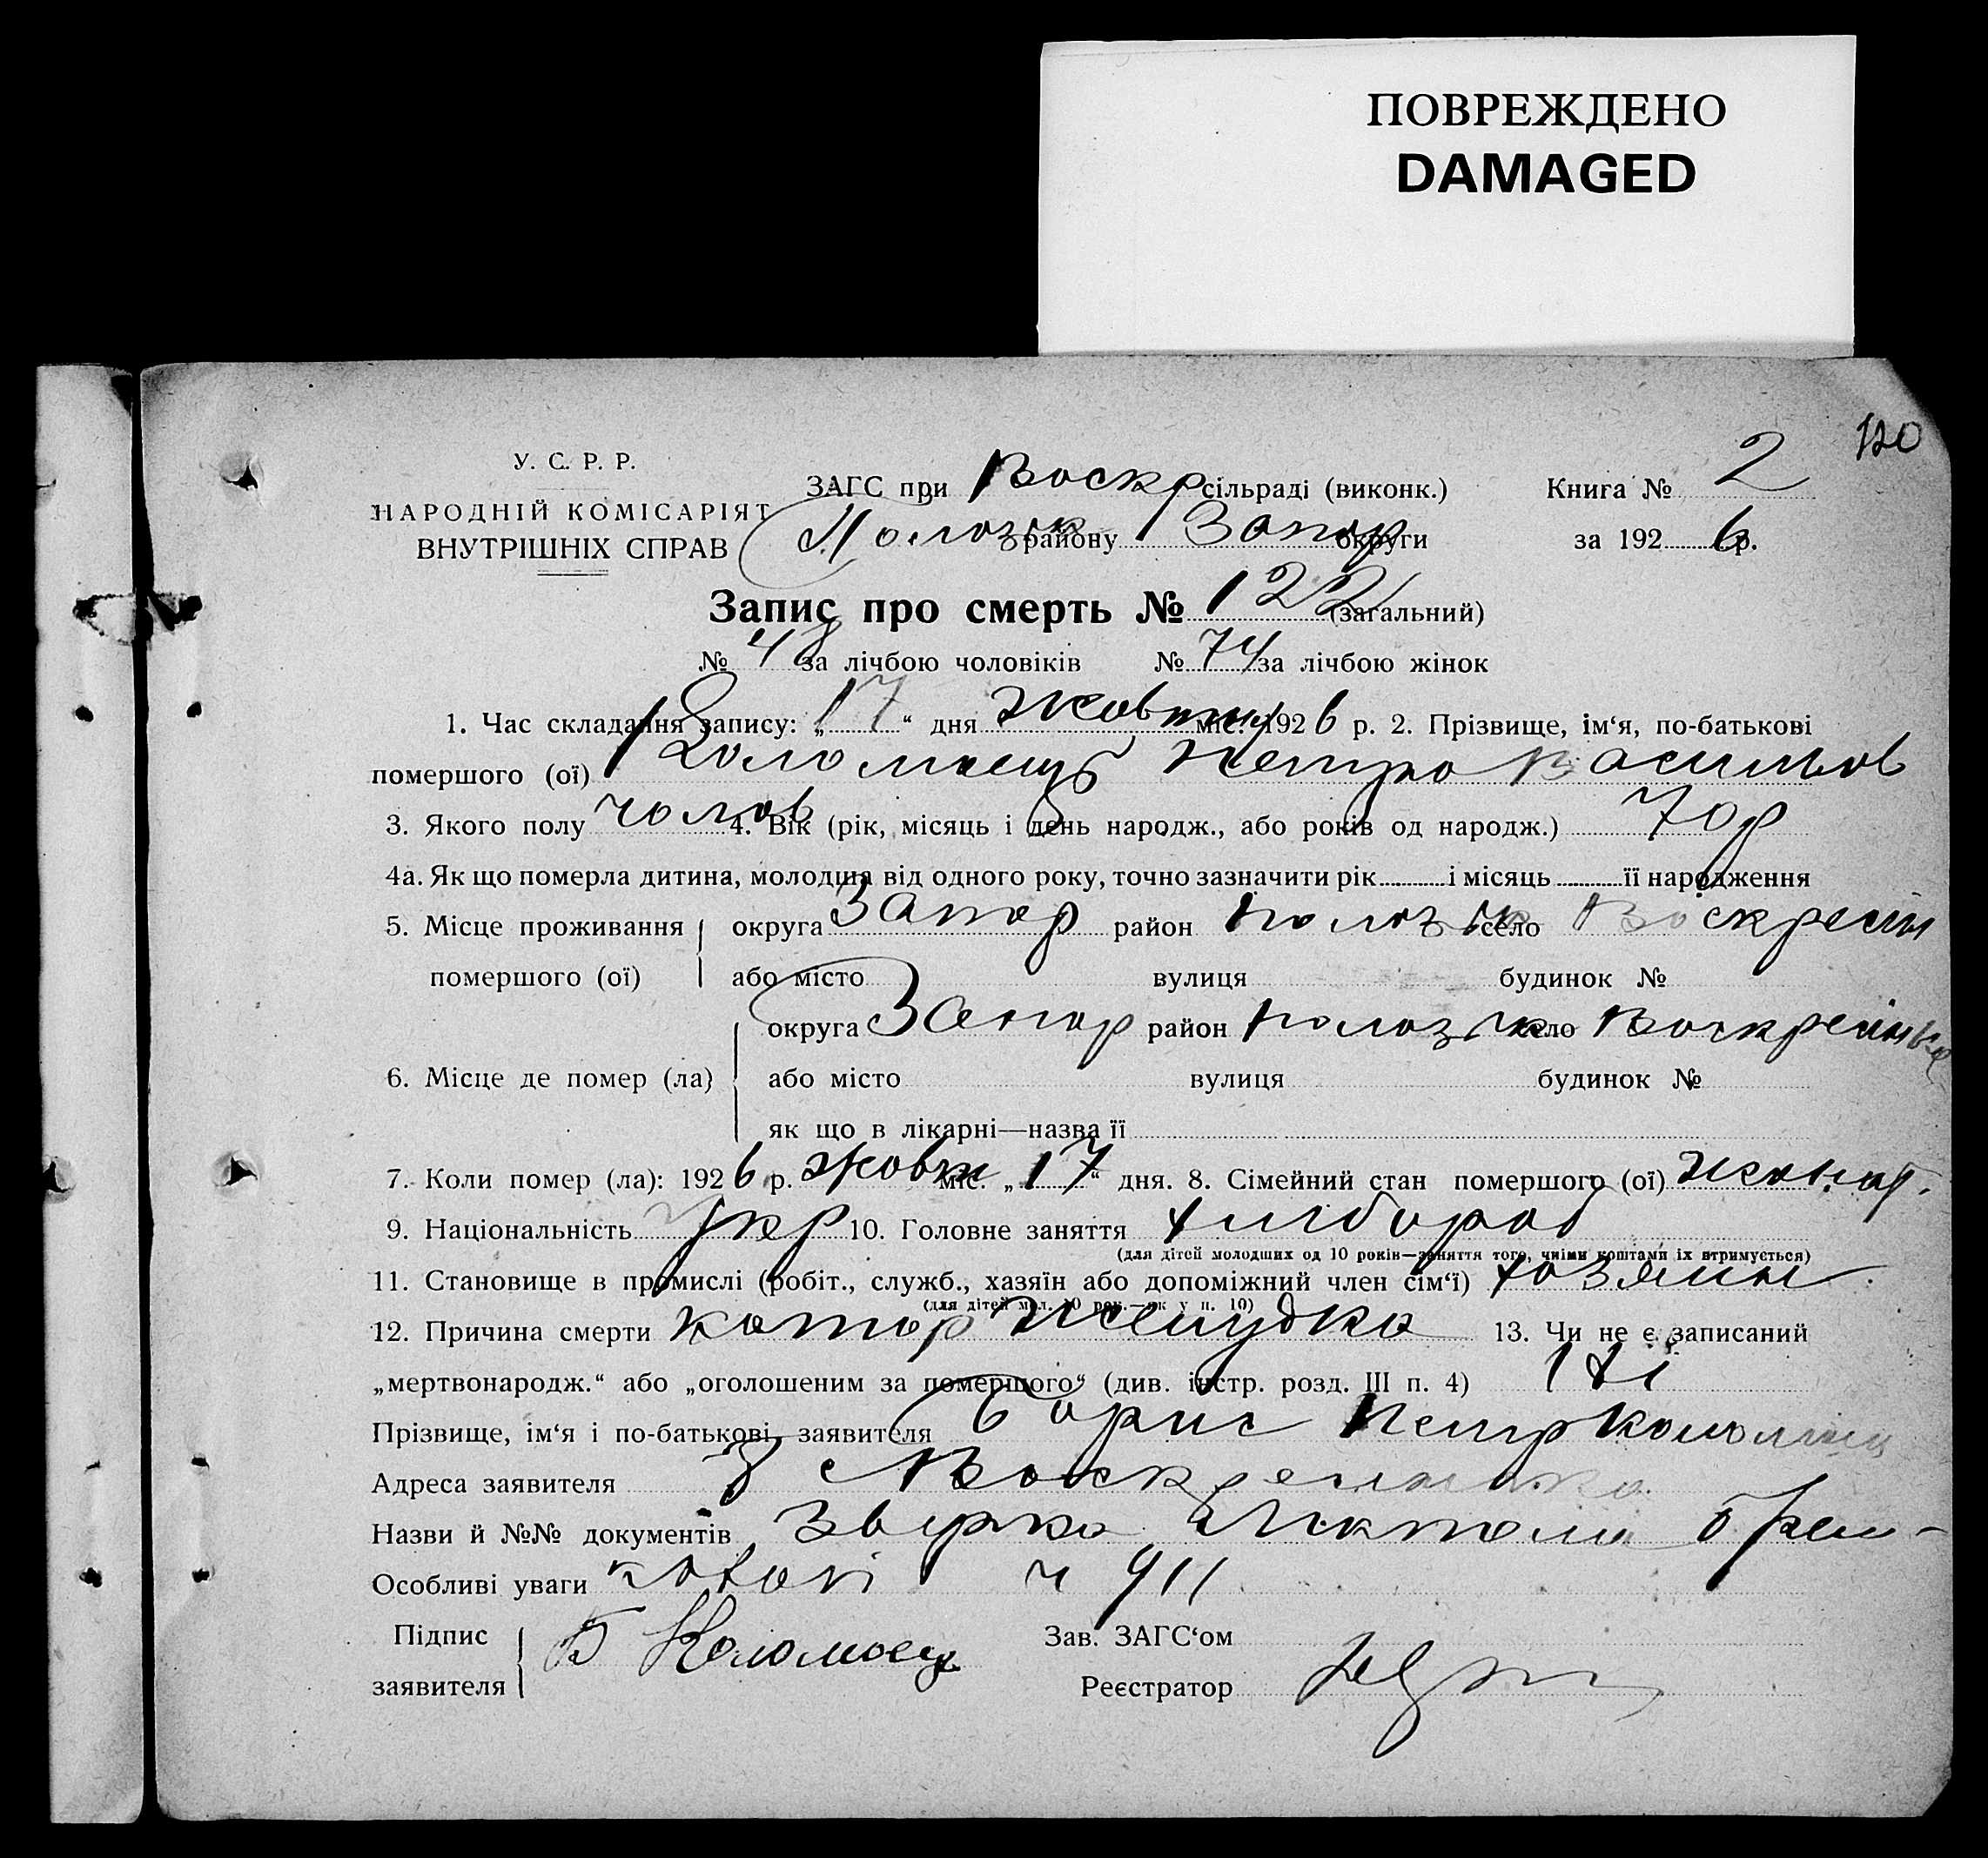 ПОВРЕЖДЕНО
DAMAGED
120
У. С. Р. Р.
НАРОДНІЙ КОМІСАРІЯТ
ВНУТРІШНІХ СПРАВ
ЗАГС при Воскр сільраді (виконк.) Книга № 2
Полозк району Запор округи за 1926 р.
Запис про смерть № 122 (загальний)
№ 48 за лічбою чоловіків № 74 за лічбою жінок
1. Час складання запису: „17“ дня Жовтня міс. 1926 р. 2. Прізвище, ім‘я, по-батькові
помершого (ої) Коломоець Петро Васильов
3. Якого полу чолов 4. Вік (рік, місяць і день народж., або років од народж.) 70 р
4а. Як що померла дитина, молодша від одного року, точно зазначити рік і місяць її народження
5. Місце проживання помершого (ої) округа Запор район Полозк село Воскресен
або місто вулиця будинок №
6. Місце де помер (ла) округа Запор район Полозк село
або місто вулиця будинок №
як що в лікарні—назва її
7. Коли помер (ла): 1926 р. Жовтн міс. „17“ дня. 8. Сімейний стан помершого (ої) жонат.
9. Національність Укр 10. Головне заняття хлібороб
(для дітей молодших од 10 років—заняття того, чиїми коштами їх втримується)
11. Становище в промислі (робіт., служб., хазяїн або допоміжний член сім‘ї) хозяин
(для дітей мол. 10 рок.—як у п. 10)
12. Причина смерти катар желудка 13. Чи не є записаний
„мертвонародж.“ або „оголошеним за помершого“ (див. інстр. розд. III п. 4) ні
Прізвище, ім‘я і по-батькові заявителя Борис Петр Коломоец
Адреса заявителя с Воскресенка
Назви й №№ документів
Особливі уваги ч 911
Підпис заявителя Б Коломоец
Зав. ЗАГС‘ом
Реєстратор